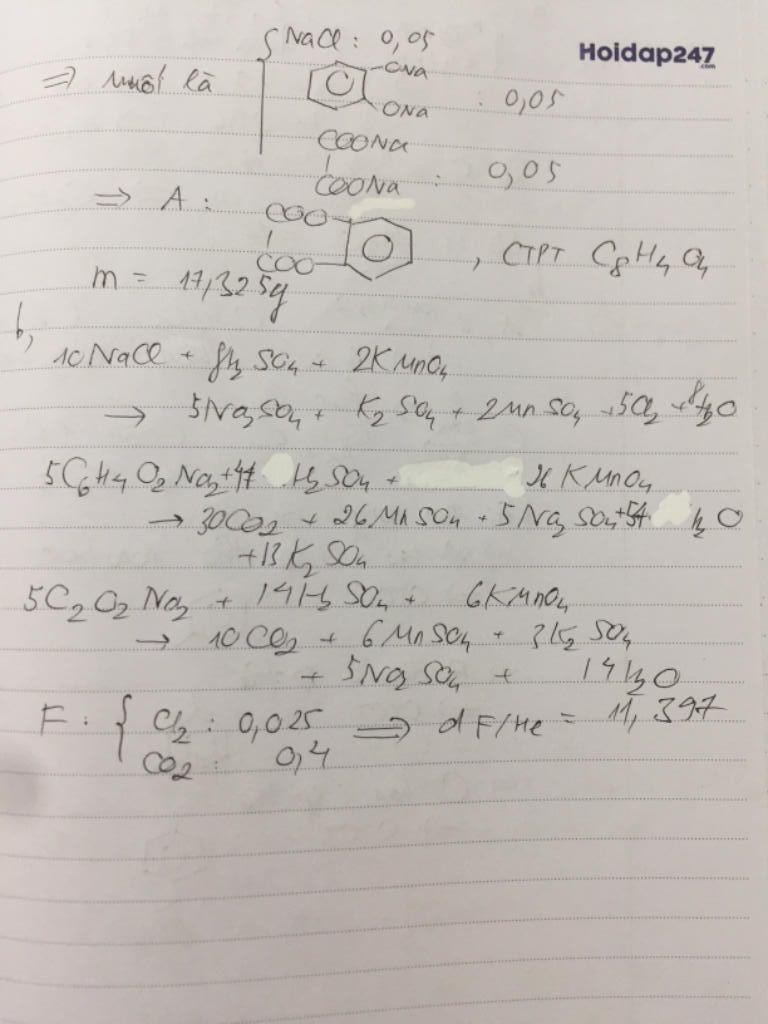 { NaCl : 0,05
Hoidap247
.com
⇒ muối là
ONa
ONa : 0,05
COONa
COONa : 0,05
⇒ A :
COO
COO , CTPT C8H4O4
m = 17,325g
b,
10NaCl + 8H2SO4 + 2KMnO4
→ 5Na2SO4 + K2SO4 + 2MnSO4 + 5Cl2 + 8H2O
5C6H4O2Na2 + 44 H2SO4 + 26KMnO4
→ 30CO2 + 26MnSO4 + 5Na2SO4 + 54 H2O
+ 13K2SO4
5C2O2Na2 + 14H2SO4 + 6KMnO4
→ 10CO2 + 6MnSO4 + 3K2SO4
+ 5Na2SO4 + 14H2O
F : { Cl2 : 0,025 ⇒ d F/He = 11,397
CO2 : 0,4